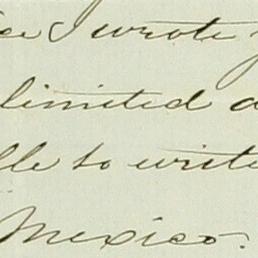 I wrote
limited
to write
Mexico.